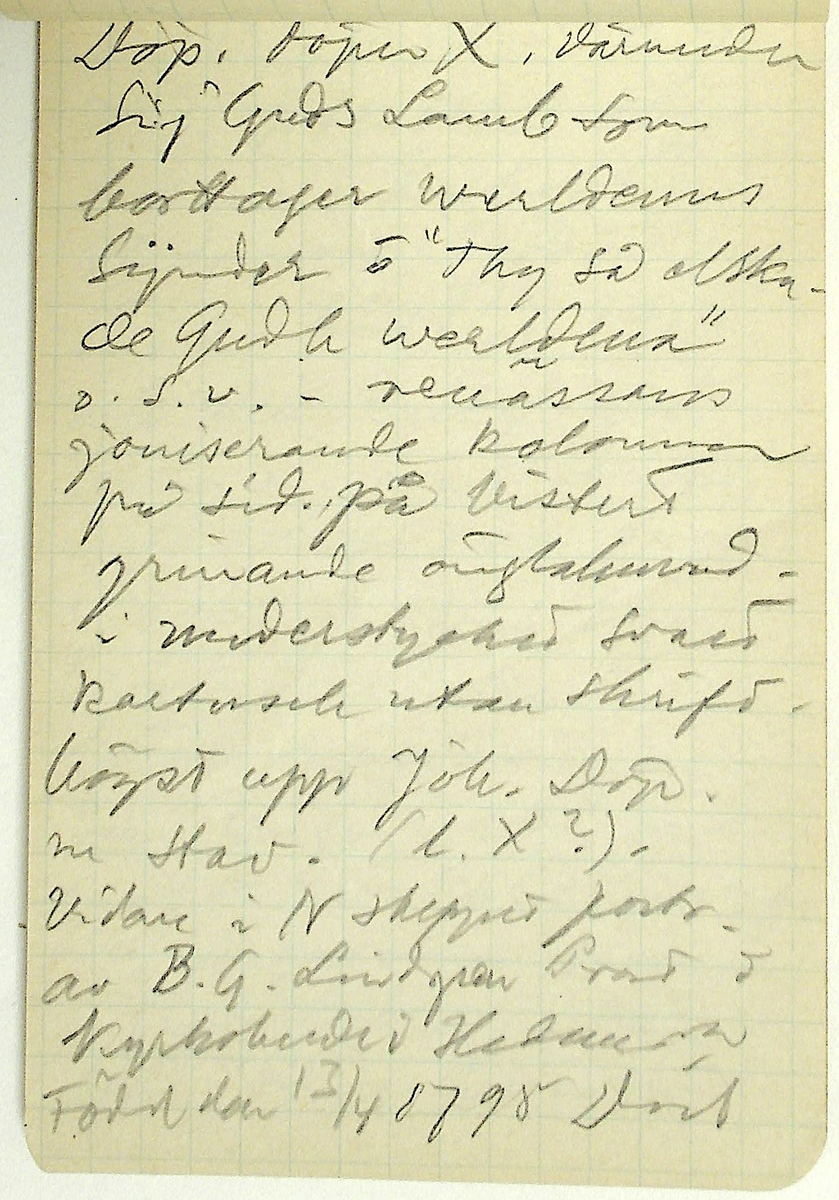 Döp. döper X, därunder
Sij Guds Lamb som
borttager werldennes
Synder o "Thy så elska-
de Gudh werldena"
o.s.v. – renässans
joniserande kolonner
på sid. på
grinande änglahuvud –
i understycket svart
kartusch utan skrift.
högst upp Joh. Döp.
m stav. (l. X?).
Vidare i N skeppet portr.
av B. G. Lindgren
Kyrkobudet
Född den 13/4 Död